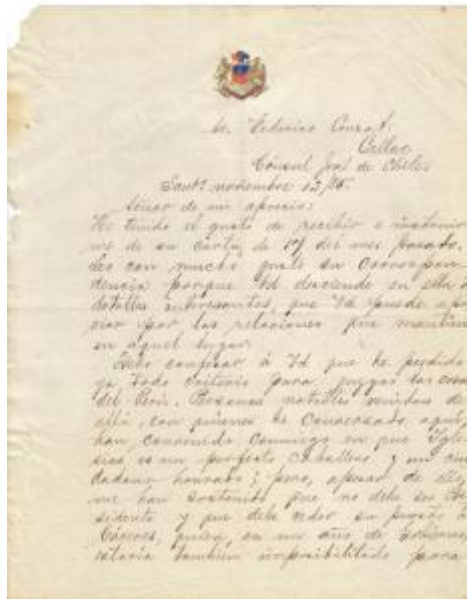 Sr. Federico
Callao
Cónsul Jral de Chile
Santo noviembre 12/85.
Señor de mi aprecio:
He tenido el gusto de recibir e instruir
me de su carta de 19 del mes pasado.
Leo con mucho gusto su correspon
dencia porque Ud desciende en ella a
detalles interesantes, que Ud puede apre
ciar por las relaciones que mantiene
en aquel lugar.
Debo confesar á Ud que he perdido
ya todo criterio para juzgar las cosas
del Perú. Personas notables venidas de
allá, con quienes he conversado aquí,
han convenido conmigo en que Igle
sias es un perfecto caballero y un ciu
dadano honrado; pero, apesar de ello,
me han sostenido que no debe ser Pre
sidente y que debe ceder su puesto á
Cáceres, quien, en un año de gobierno,
estaría también imposibilitado para